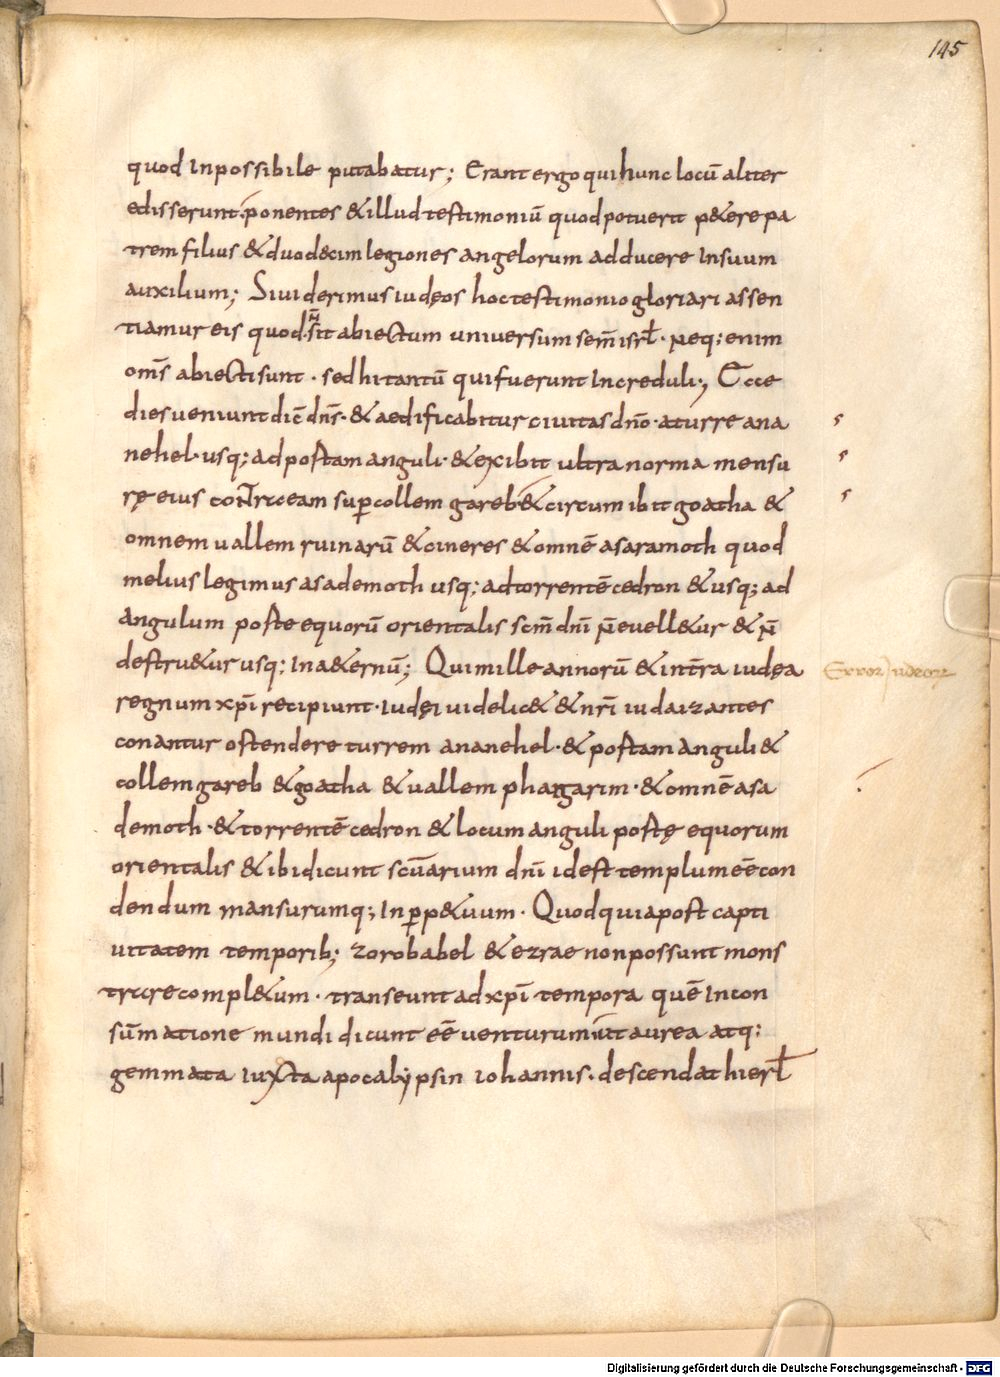 145
quod Inpossibile putabatur; Erant ergo qui hunc locū aliter
edisserunt. ponentes & illud testimoniū quod potuerit p&ere pa
trem filius & duod&cim legiones angelorum adducere Insuum
auxilium; Siuiderimus iudęos hoc testimonio gloriari assen
tiamur eis quod. n̄ sit abiectum uniuersum sem̄ isrl̄. neq; enim
om̄s abiecti sunt. sed hi tantū qui fuerunt Increduli; Ecce
dies ueniunt dic̄ dn̄s. & aedificabitur ciuitas dn̄o. aturre ana
nehel. usq; ad portam anguli. & exibit ultra norma mensu
rę eius super collem gareb & circum ibit goatha &
omnem uallem ruinarū & cineres & omnē asaramoth quod
melius legimus asademoth usq; ad torrentē cedron & usq; ad
angulum porte equorū orientalis scm̄ dn̄i n̄ euell&ur & n̄
destru&ur usq; In a&ernū; Qui mille annorū & intr̄a iudęa
Error Iudeorꝝ
regnum xp̄i recipiunt. iudęi uidelic& & nr̄i iudaizantes
conantur ostendere turrem ananehel. & portam anguli &
collem gareb & goatha & uallem phagarim. & omnē asa
demoth. & torrentē cedron & locum anguli portę equorum
orientalis & ibi dicunt scūarium dn̄i id est templum eē con
dendum mansurumq; In pp&uum. Quod quia post capti
uitatem temporib; zorobabel & ezrae non possunt mons
trare compl&um. transeunt ad xp̄i tempora quē Incon
sūmatione mundi dicunt eē uenturum ut aurea atq;
gemmata iuxta apocalypsin iohannis. descendat hierl̄
Digitalisierung gefördert durch die Deutsche Forschungsgemeinschaft - DFG